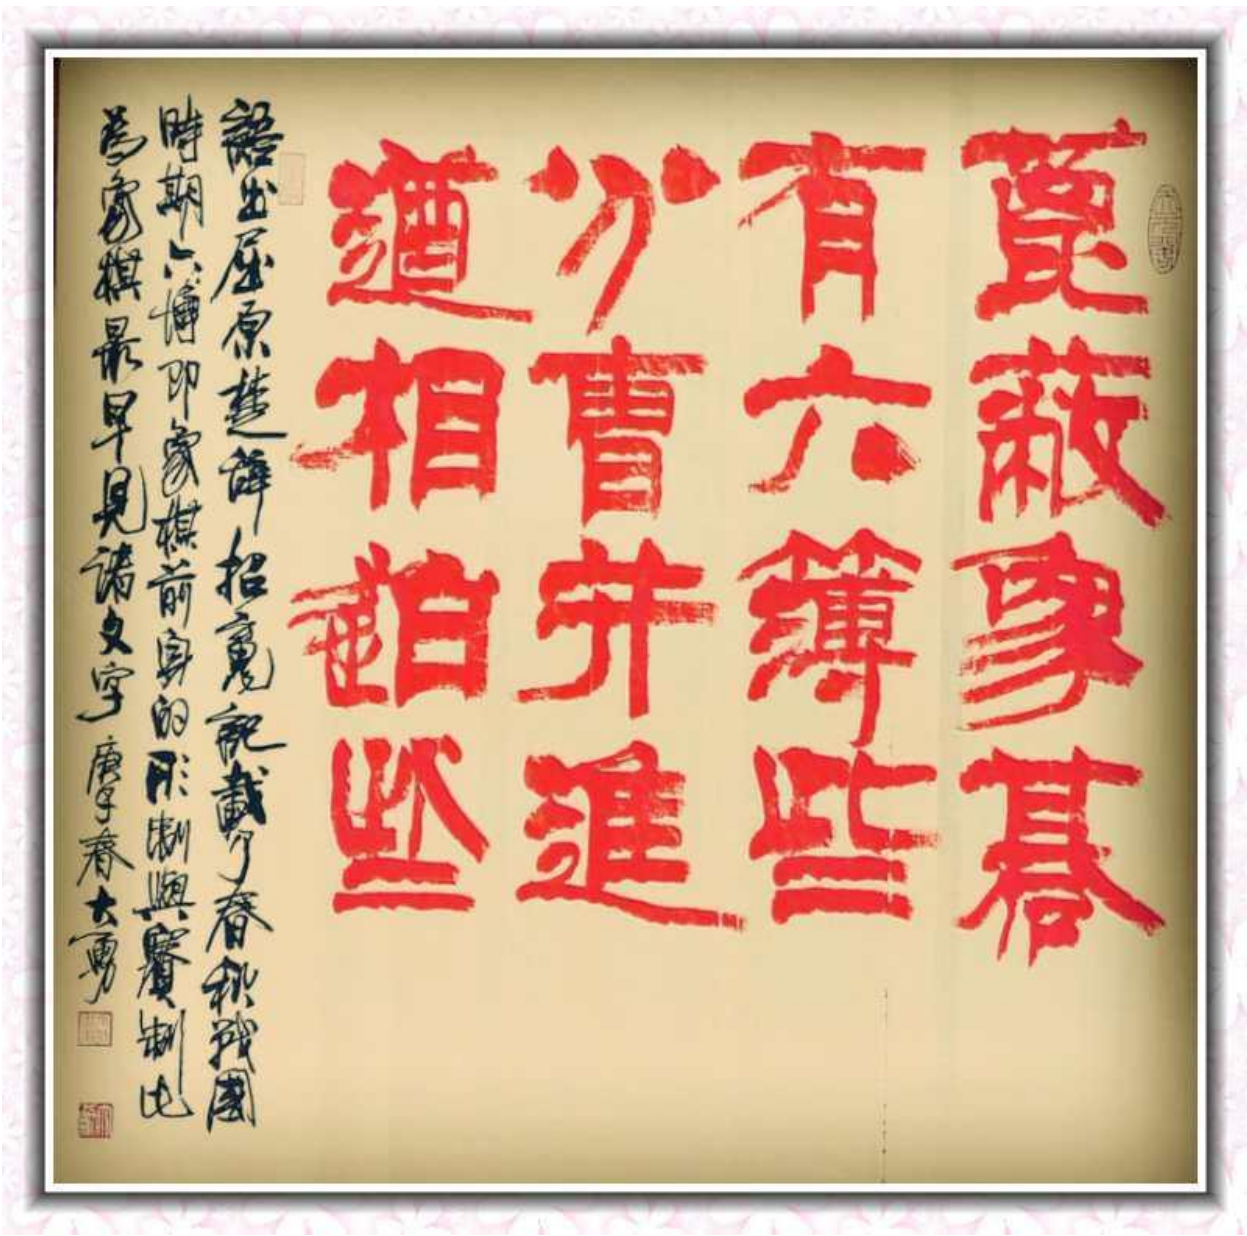 菎蔽象碁
有六簿些
分曹并進
遒相迫些
語出屈原楚辭招魂記載了春秋戰國
時期六博即象棋前身的形制與賽制此
為象棋最早見諸文字 庚子春大勇